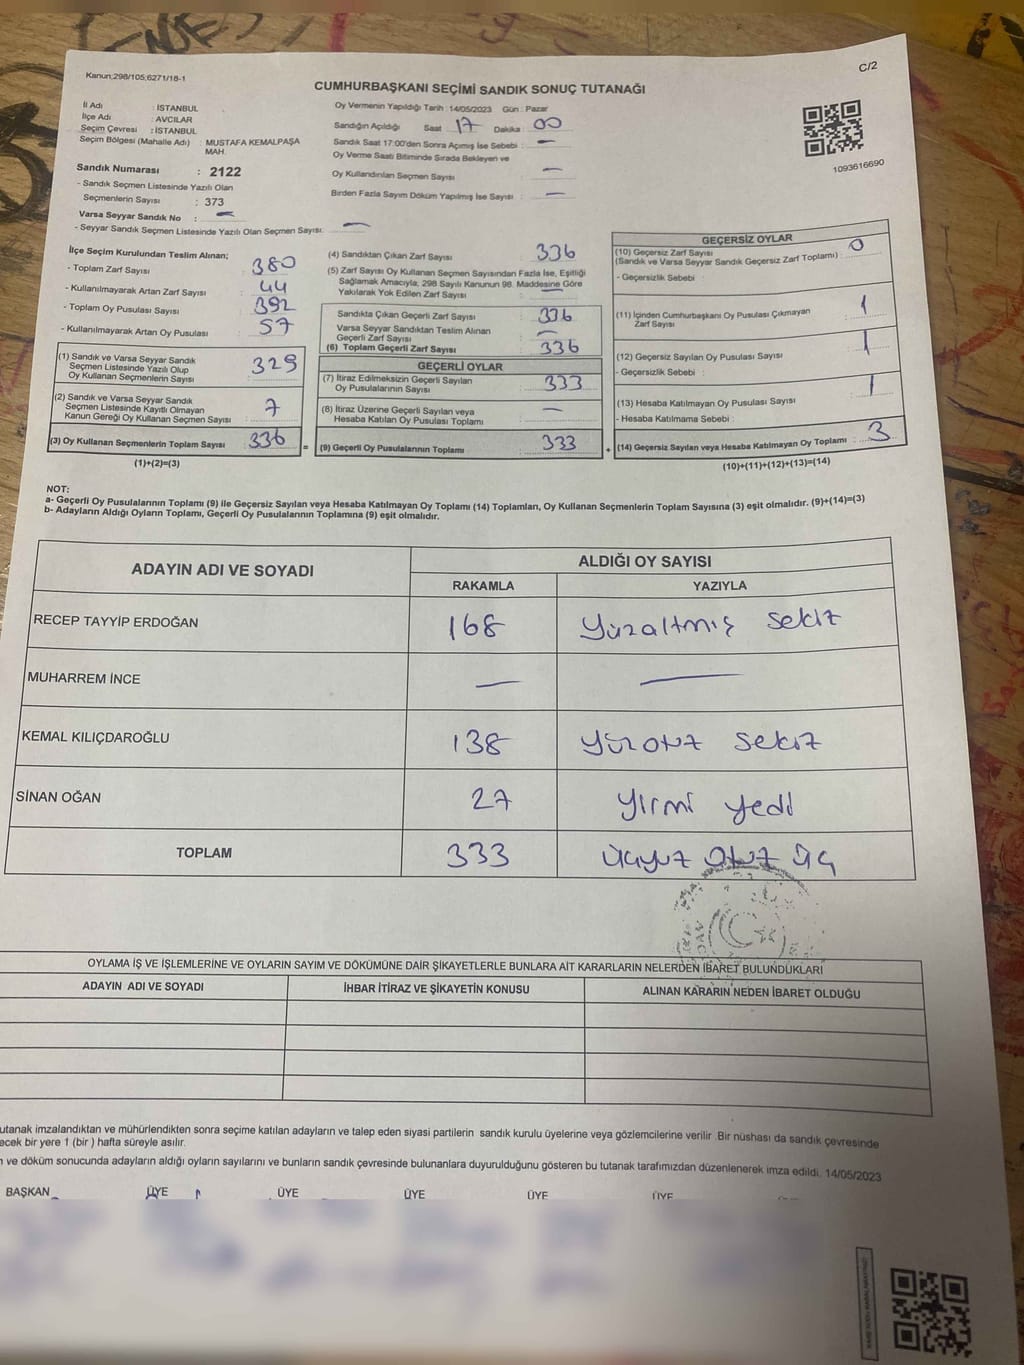 Kanun;298/105;6271/18-1
C/2
CUMHURBAŞKANI SEÇİMİ SANDIK SONUÇ TUTANAĞI
İl Adı : İSTANBUL
İlçe Adı : AVCILAR
Seçim Çevresi : İSTANBUL
Seçim Bölgesi (Mahalle Adı) : MUSTAFA KEMALPAŞA
MAH.
Sandık Numarası : 2122
- Sandık Seçmen Listesinde Yazılı Olan
Seçmenlerin Sayısı : 373
Varsa Seyyar Sandık No : —
- Seyyar Sandık Seçmen Listesinde Yazılı Olan Seçmen Sayısı: —
Oy Vermenin Yapıldığı Tarih : 14/05/2023 Gün : Pazar
Sandığın Açıldığı Saat : 17 Dakika : 00
Sandık Saat 17:00'den Sonra Açımış İse Sebebi : —
Oy Verme Saati Bitiminde Sırada Bekleyen ve
Oy Kullandırılan Seçmen Sayısı : —
Birden Fazla Sayım Döküm Yapılmış İse Sayısı : —
1093616690
İlçe Seçim Kurulundan Teslim Alınan;
- Toplam Zarf Sayısı : 380
- Kullanılmayarak Artan Zarf Sayısı : 44
- Toplam Oy Pusulası Sayısı : 392
- Kullanılmayarak Artan Oy Pusulası : 57
(1) Sandık ve Varsa Seyyar Sandık
Seçmen Listesinde Yazılı Olup
Oy Kullanan Seçmenlerin Sayısı : 329
(2) Sandık ve Varsa Seyyar Sandık
Seçmen Listesinde Kayıtlı Olmayan
Kanun Gereği Oy Kullanan Seçmen Sayısı : 7
(3) Oy Kullanan Seçmenlerin Toplam Sayısı : 336
(1)+(2)=(3)
(4) Sandıktan Çıkan Zarf Sayısı : 336
(5) Zarf Sayısı Oy Kullanan Seçmen Sayısından Fazla İse, Eşitliği
Sağlamak Amacıyla, 298 Sayılı Kanunun 98. Maddesine Göre
Yakılarak Yok Edilen Zarf Sayısı : —
Sandıkta Çıkan Geçerli Zarf Sayısı : 336
Varsa Seyyar Sandıktan Teslim Alınan
Geçerli Zarf Sayısı : —
(6) Toplam Geçerli Zarf Sayısı : 336
=
GEÇERLİ OYLAR
(7) İtiraz Edilmeksizin Geçerli Sayılan
Oy Pusulalarının Sayısı : 333
(8) İtiraz Üzerine Geçerli Sayılan veya
Hesaba Katılan Oy Pusulası Toplamı : —
(9) Geçerli Oy Pusulalarının Toplamı : 333
+
GEÇERSİZ OYLAR
(10) Geçersiz Zarf Sayısı : 0
(Sandık ve Varsa Seyyar Sandık Geçersiz Zarf Toplamı)
- Geçersizlik Sebebi :
(11) İçinden Cumhurbaşkanı Oy Pusulası Çıkmayan
Zarf Sayısı : 1
(12) Geçersiz Sayılan Oy Pusulası Sayısı : 1
- Geçersizlik Sebebi :
(13) Hesaba Katılmayan Oy Pusulası Sayısı : 1
- Hesaba Katılmama Sebebi :
(14) Geçersiz Sayılan veya Hesaba Katılmayan Oy Toplamı : 3
(10)+(11)+(12)+(13)=(14)
NOT:
a- Geçerli Oy Pusulalarının Toplamı (9) ile Geçersiz Sayılan veya Hesaba Katılmayan Oy Toplamı (14) Toplamları, Oy Kullanan Seçmenlerin Toplam Sayısına (3) eşit olmalıdır. (9)+(14)=(3)
b- Adayların Aldığı Oyların Toplamı, Geçerli Oy Pusulalarının Toplamına (9) eşit olmalıdır.
ADAYIN ADI VE SOYADI
ALDIĞI OY SAYISI
RAKAMLA YAZIYLA
RECEP TAYYİP ERDOĞAN 168 Yüzaltmış sekiz
MUHARREM İNCE — —
KEMAL KILIÇDAROĞLU 138 Yüzotuz sekiz
SİNAN OĞAN 27 Yirmi yedi
TOPLAM 333 üçyüz otuz üç
OYLAMA İŞ VE İŞLEMLERİNE VE OYLARIN SAYIM VE DÖKÜMÜNE DAİR ŞİKAYETLERLE BUNLARA AİT KARARLARIN NELERDEN İBARET BULUNDUKLARI
ADAYIN ADI VE SOYADI İHBAR İTİRAZ VE ŞİKAYETİN KONUSU ALINAN KARARIN NEDEN İBARET OLDUĞU
utanak imzalandıktan ve mühürlendikten sonra seçime katılan adayların ve talep eden siyasi partilerin sandık kurulu üyelerine veya gözlemcilerine verilir .Bir nüshası da sandık çevresinde
ecek bir yere 1 (bir ) hafta süreyle asılır.
ve döküm sonucunda adayların aldığı oyların sayılarını ve bunların sandık çevresinde bulunanlara duyurulduğunu gösteren bu tutanak tarafımızdan düzenlenerek imza edildi. 14/05/2023
BAŞKAN ÜYE ÜYE ÜYE ÜYE ÜYE